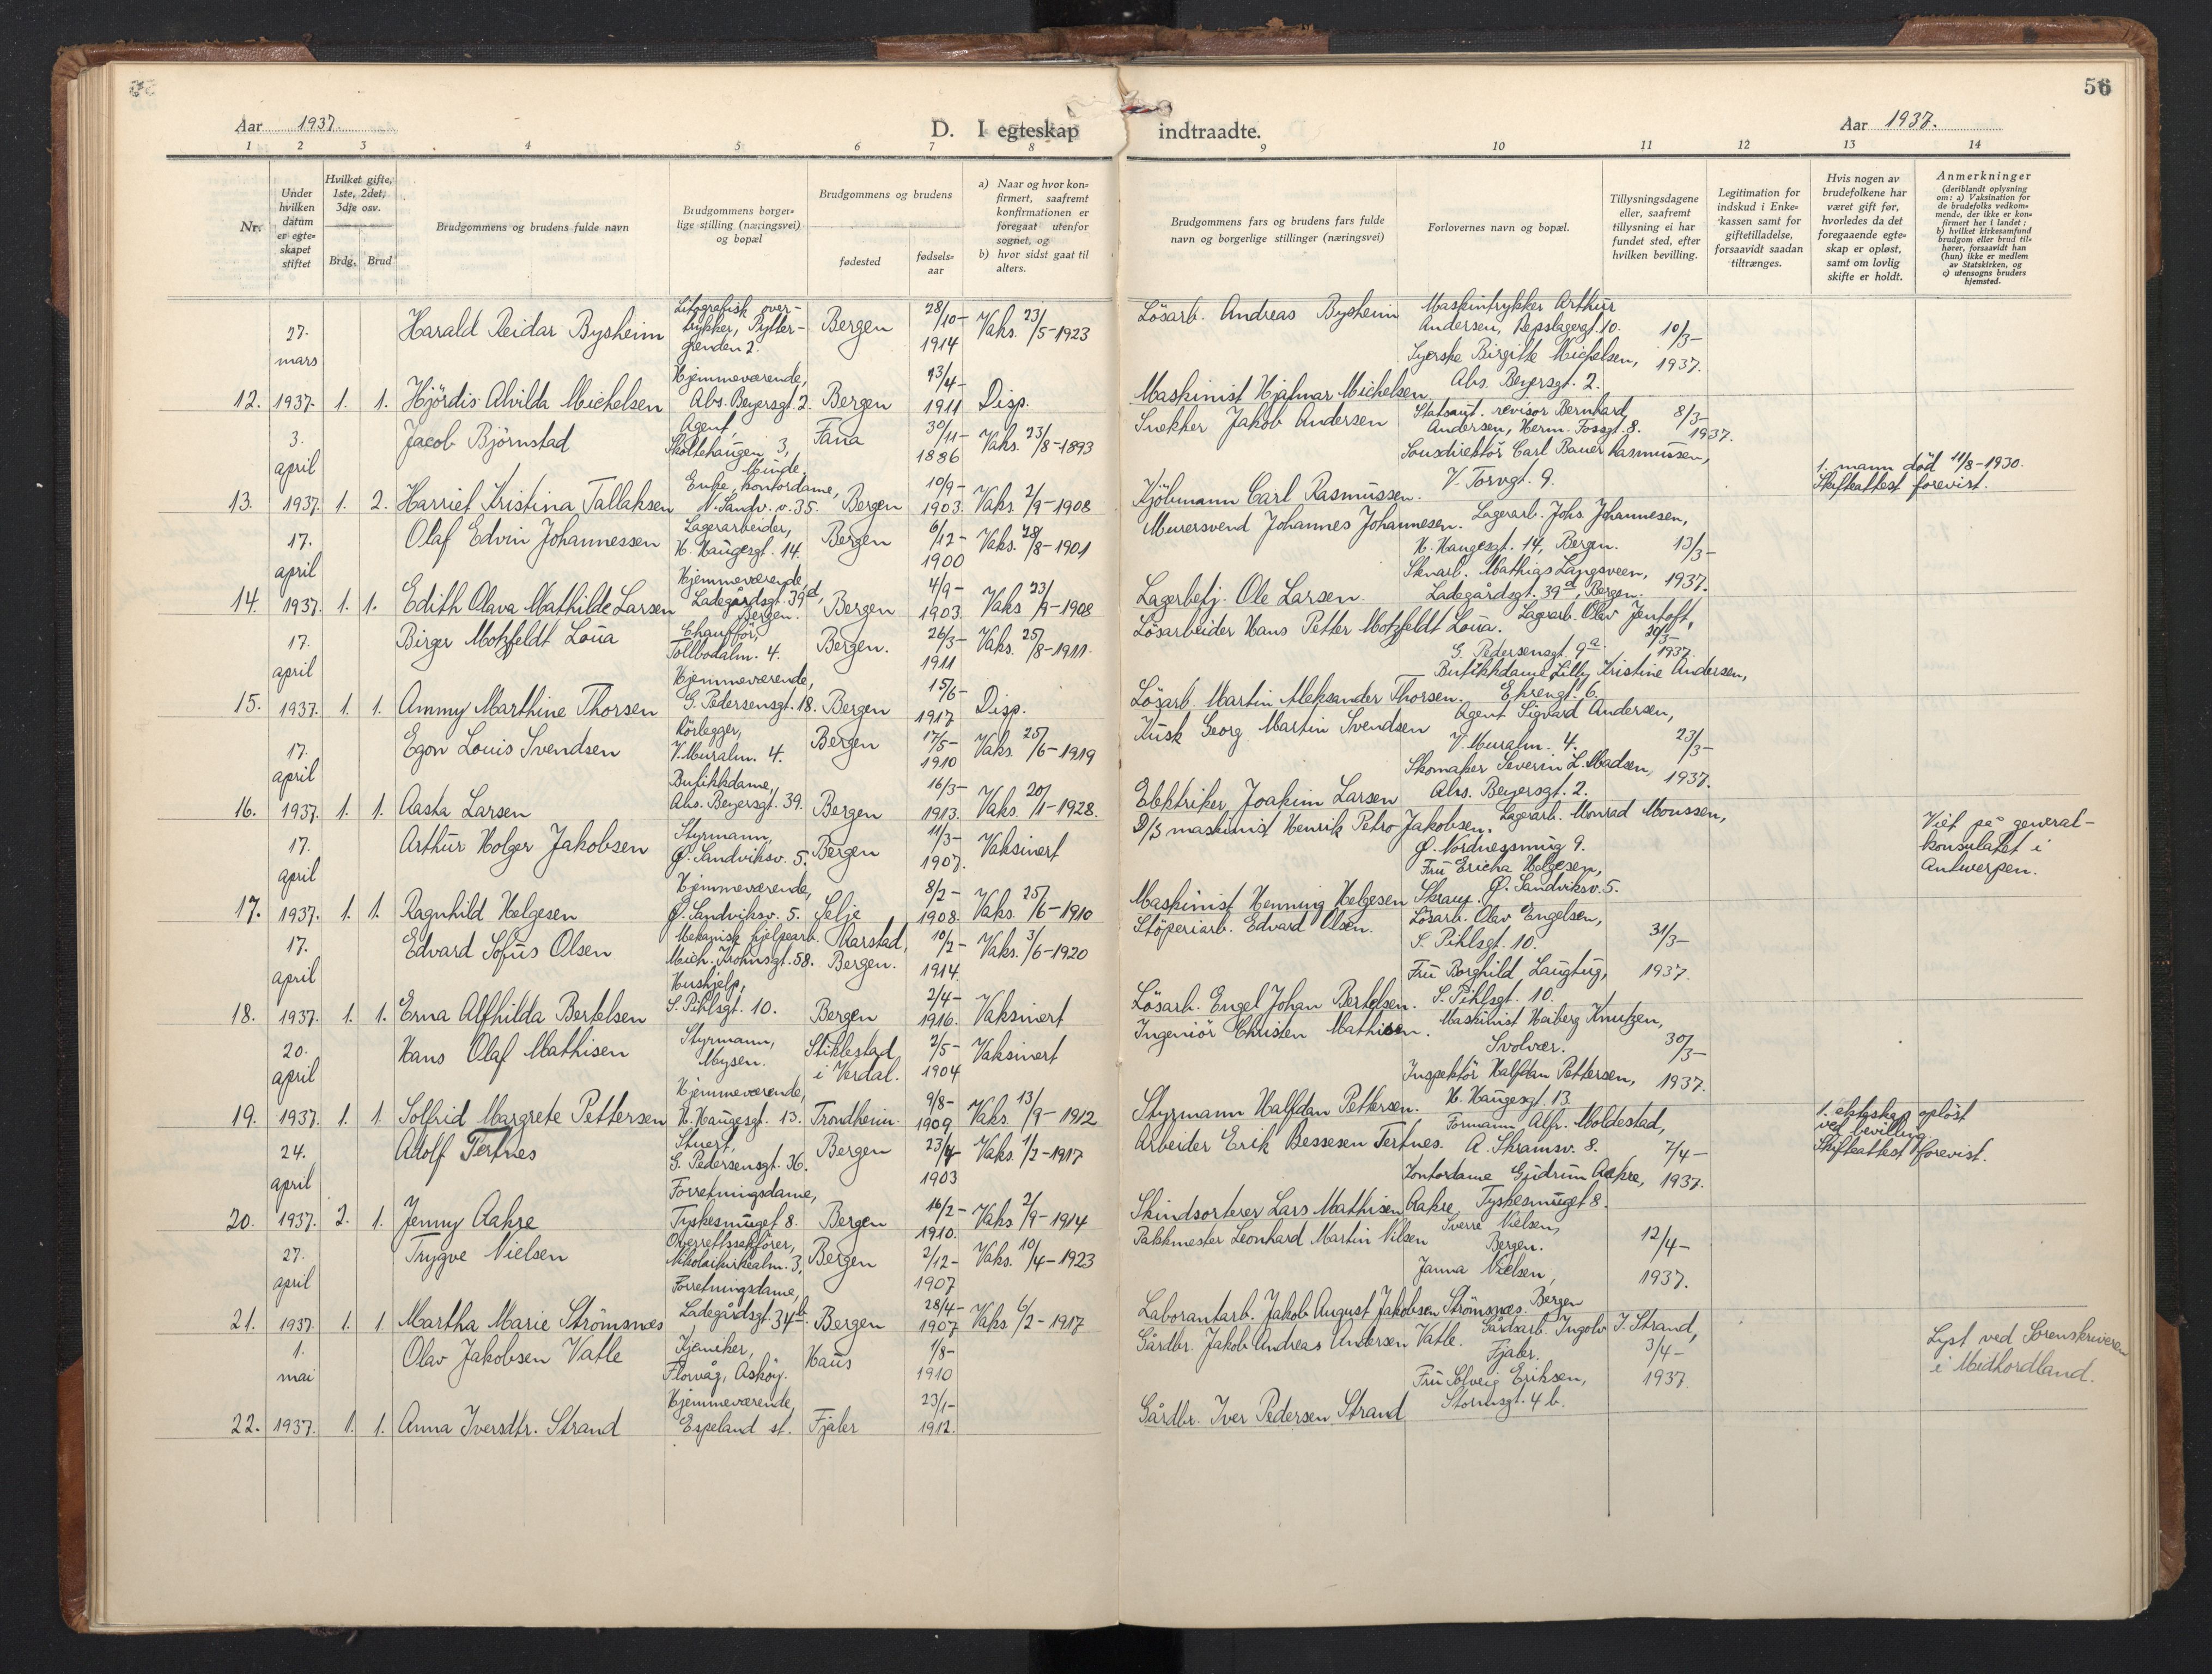 56
Aar 1937.
D. I egteskap indtraadte.
Aar 1937.
1 2 3 4 5 6 7 8 9 10 11 12 13 14
Nr.
Under hvilken datum er egteskapet stiftet
Hvilket gifte, 1ste, 2det, 3dje osv.
Brdg. Brud
Brudgommens og brudens fulde navn
Brudgommens borgerlige stilling (næringsvei) og bopæl
Brudgommens og brudens
fødested
fødselsaar
a) Naar og hvor konfirmert, saafremt konfirmationen er foregaat utenfor sognet, og
b) hvor sidst gaat til alters.
Brudgommens fars og brudens fars fulde navn og borgerlige stillinger (næringsvei)
Forlovernes navn og bopæl.
Tillysningsdagene eller, saafremt tillysning ei har fundet sted, efter hvilken bevilling.
Legitimation for indskud i Enkekassen samt for giftetilladelse, forsaavidt saadan tiltrænges.
Hvis nogen av brudefolkene har været gift før, hvorledes da det foregaaende egteskap er opløst, samt om lovlig skifte er holdt.
Anmerkninger
(deriblandt oplysning om: a) Vaksination for de brudefolks vedkommende, der ikke er konfirmert her i landet; b) hvilket kirkesamfund brudgom eller brud tilhører, forsaavidt han (hun) ikke er medlem av Statskirken, og c) utensogns bruders hjemsted.
12. 27. mars 1937. 1. 1.
Harald Reidar Bysheim
Litografisk overtrykker, Pyttergrenden 2.
Bergen 28/10-1914 Vaks. 23/5-1923
Lösarb. Andreas Bysheim
Maskintrykker Arthur Andersen, Repslagergt. 10.
10/3-1937.
Hjördis Alvilda Michelsen
Hjemmeværende, Abs. Beyersgt 2.
Bergen 13/4-1911 Disp.
Maskinist Hjalmar Michelsen
Syerske Birgitte Michelsen, Abs. Beyersgt. 2.
13. 3. april 1937. 1. 2.
Jacob Björnstad
Agent, Skoltehaugen 3,
Fana 30/11-1886 Vaks. 23/8-1893
Snekker Jakob Andersen
Statsaut. revisor Bernhard Andersen, Herm. Fossgt. 8.
8/3-1937.
Harriet Kristina Tallaksen
Enke, kontordame, N. Sandv. v. 35.
Bergen 10/9-1903. Vaks. 2/9-1908
Kjöbmann Carl Rasmussen.
Sousdirektör Carl Bauer Rasmussen, V. Torvgt. 9.
1. mann död 11/8-1930. Skifteattest forevist.
14. 17. april 1937. 1. 1.
Olaf Edvin Johannessen
Lagerarbeider, H. Haugesgt. 14.
Bergen 6/12-1900 Vaks. 28/8-1901
Murersvend Johannes Johannesen.
Lagerarb. Johs. Johannesen, H. Haugesgt. 14, Bergen.
13/3-1937.
Edith Olava Mathilde Larsen
Hjemmeværende, Ladegårdsgt. 39d, Bergen.
Bergen 4/9-1903. Vaks 23/9-1908
Lagerbetj. Ole Larsen.
Sknarb. Mathias Langsveen, Ladegårdsgt. 39d, Bergen.
15. 17. april 1937. 1. 1.
Birger Motzfeldt Loua
Chaufför, Tollbodalm. 4.
Bergen. 26/3-1911 Vaks. 25/8-1911.
Lösarbeider Hans Petter Motzfeldt Loua.
Lagerarb. Olav Jentoft, G. Pedersensgt. 9a.
20/3-1937.
Ammy Marthine Thorsen
Hjemmeværende, G. Pedersensgt. 18.
Bergen 15/6-1917 Disp.
Lösarb. Martin Aleksander Thorsen.
Butikkdame Lilly Kristine Andersen, Ehrengt. 6.
16. 17. april 1937. 1. 1.
Egon Louis Svendsen
Rörlegger, V. Muralm. 4.
Bergen 17/5-1910 Vaks. 25/6-1919
Kusk Georg Martin Svendsen
Agent Sigvard Andersen, V. Muralm. 4.
23/3-1937.
Aasta Larsen
Butikkdame, Abs. Beyersgt. 39.
Bergen 16/3-1913. Vaks. 20/1-1928.
Elektriker Joakim Larsen
Skomaker Severin L. Madsen, Abs. Beyersgt. 2.
17. 17. april 1937. 1. 1.
Arthur Holger Jakobsen
Styrmann, Ø. Sandviksv. 5.
Bergen 11/3-1907. Vaksinert
D/S maskinist Henrik Petro Jakobsen.
Lagerarb. Monrad Monssen, Ø. Nordnessmug 9.
Viet på generalkonsulatet i Antwerpen.
Ragnhild Helgesen
Hjemmeværende, Ø. Sandviksv. 5.
Selje 8/2-1908. Vaks. 25/6-1910
Maskinist Henning Helgesen Skram.
Fru Ericha Helgesen, Ø. Sandviksv. 5.
18. 17. april 1937. 1. 1.
Edvard Sofus Olsen
Mekanisk hjelpearb. Mich. Krohnsgt. 58.
Harstad, Bergen. 10/2-1914. Vaks. 3/6-1920
Stöperiarb. Edvard Olsen.
Lösarb. Olav Engelsen, S. Pihlsgt. 10.
31/3-1937.
Erna Alfhilda Bertelsen
Hushjelp, S. Pihlsgt. 10.
Bergen 2/4-1916. Vaksinert
Lösarb. Engel Johan Bertelsen.
Fru Borghild Laugtug, S. Pihlsgt. 10.
19. 20. april 1937. 1. 1.
Hans Olaf Mathisen
Styrmann, Mysen.
Stiklestad i Verdal. 2/5-1904 Vaksinert
Ingeniör Christen Mathisen.
Maskinist Heiberg Knutzen, Svolvær.
30/3-1937.
Solfrid Margrete Pettersen
Hjemmeværende, H. Haugesgt. 13.
Trondheim. 9/8-1909 Vaks. 13/9-1912
Styrmann Halfdan Pettersen.
Inspektör Halfdan Pettersen, H. Haugesgt 13.
20. 24. april 1937. 2. 1.
Adolf Tertnes
Stuert, G. Pedersensgt. 36.
Bergen 23/4-1903 Vaks. 1/2-1917
Arbeider Erik Bessesen Tertnes.
Formann Alfr. Moldestad, A. Skramsv. 8.
7/4-1937.
1. ekteskap oplöst ved bevilling. Skifteattest forevist.
Jenny Aakre
Forretningsdame, Tyskesmuget 8.
Bergen 16/2-1910. Vaks 2/9-1914
Skindsorterer Lars Mathisen Aakre
Kontordame Gudrun Aakre, Tyskesmuget 8.
21. 27. april 1937. 1. 1
Trygve Nielsen
Overrettssakförer, Nikolaikirkealm. 3,
Bergen 2/12-1907 Vaks. 10/4-1923
Pakkmester Leonhard Martin Nilsen
Sverre Nielsen, Bergen.
12/4-1937.
Martha Marie Strömsnes
Forretningsdame, Ladegårdsgt. 34b.
Bergen 28/4-1907 Vaks 6/2-1917
Laborantarb. Jakob August Jakobsen Strömsnes.
Janna Nielsen, Bergen
22. 1. mai 1937. 1. 1.
Olav Jakobsen Vatle
Florvåg, Asköy.
Haus 1/8-1910
Gårdbr. Jakob Andreas Andersen Vatle.
Gårdsarb. Ingolv I. Strand, Fjaler.
3/4-1937.
Lyst ved Sorenskriveren i Midhordland.
Anna Iversdtr. Strand
Hjemmeværende, Espeland st.
Fjaler 23/1-1912.
Gårdbr. Iver Pedersen Strand
Fru Solveig Eriksen, Stormsgt. 4 b.